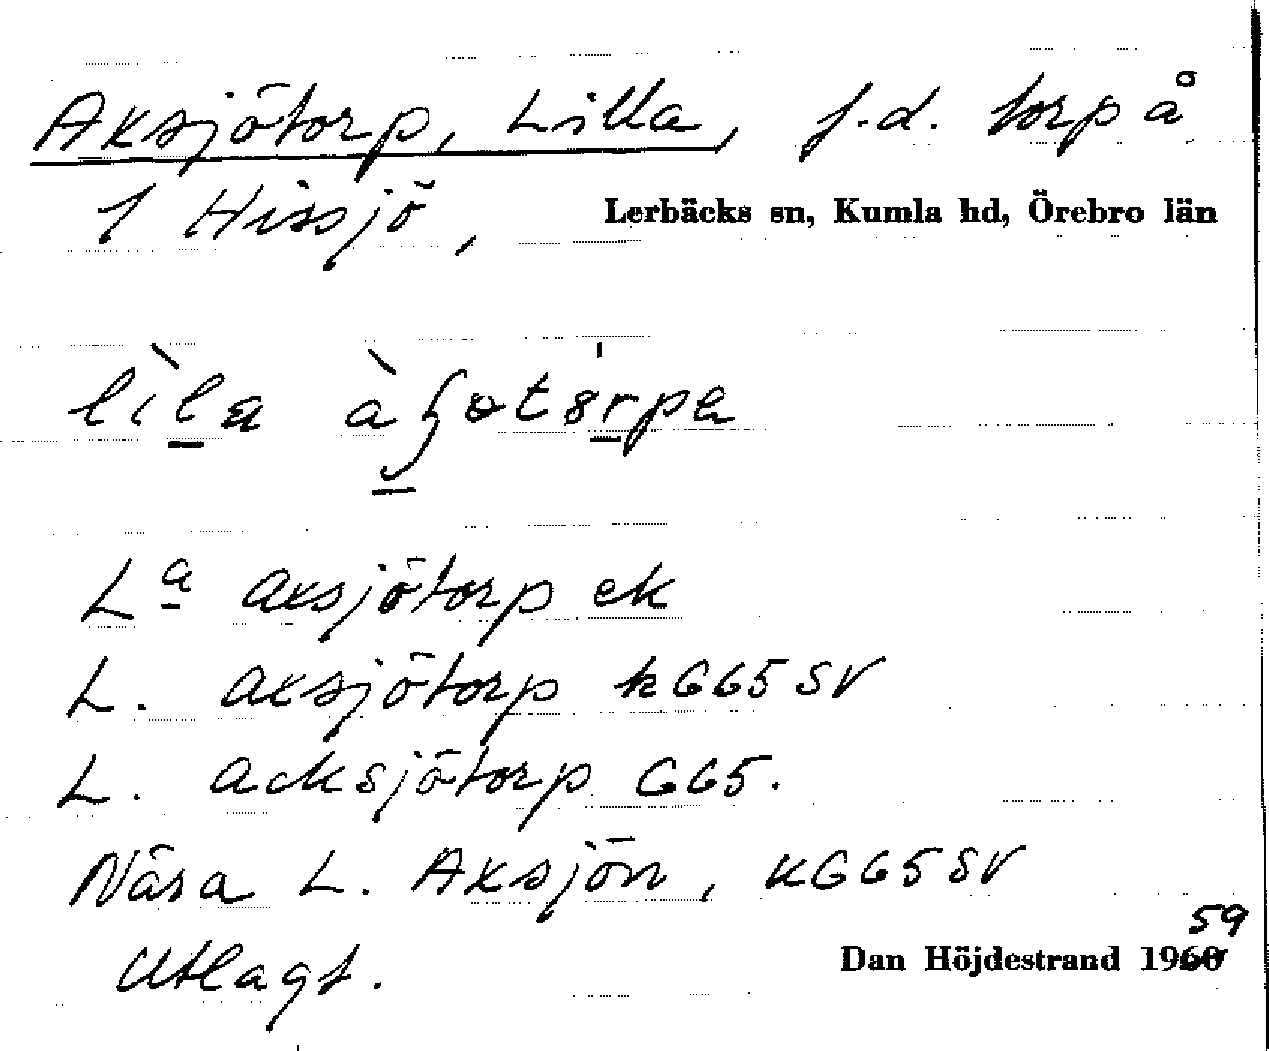 Aksjötorp, Lilla, f.d. torp å
1 Hissjö, Lerbäcks sn, Kumla hd, Örebro län
lìla
La Aksjötorp ek
L. Aksjötorp kG65SV
L. Acksjötorp G65.
Nära L. Aksjön, kG65SV
Utlagt. Dan Höjdestrand 1960 59